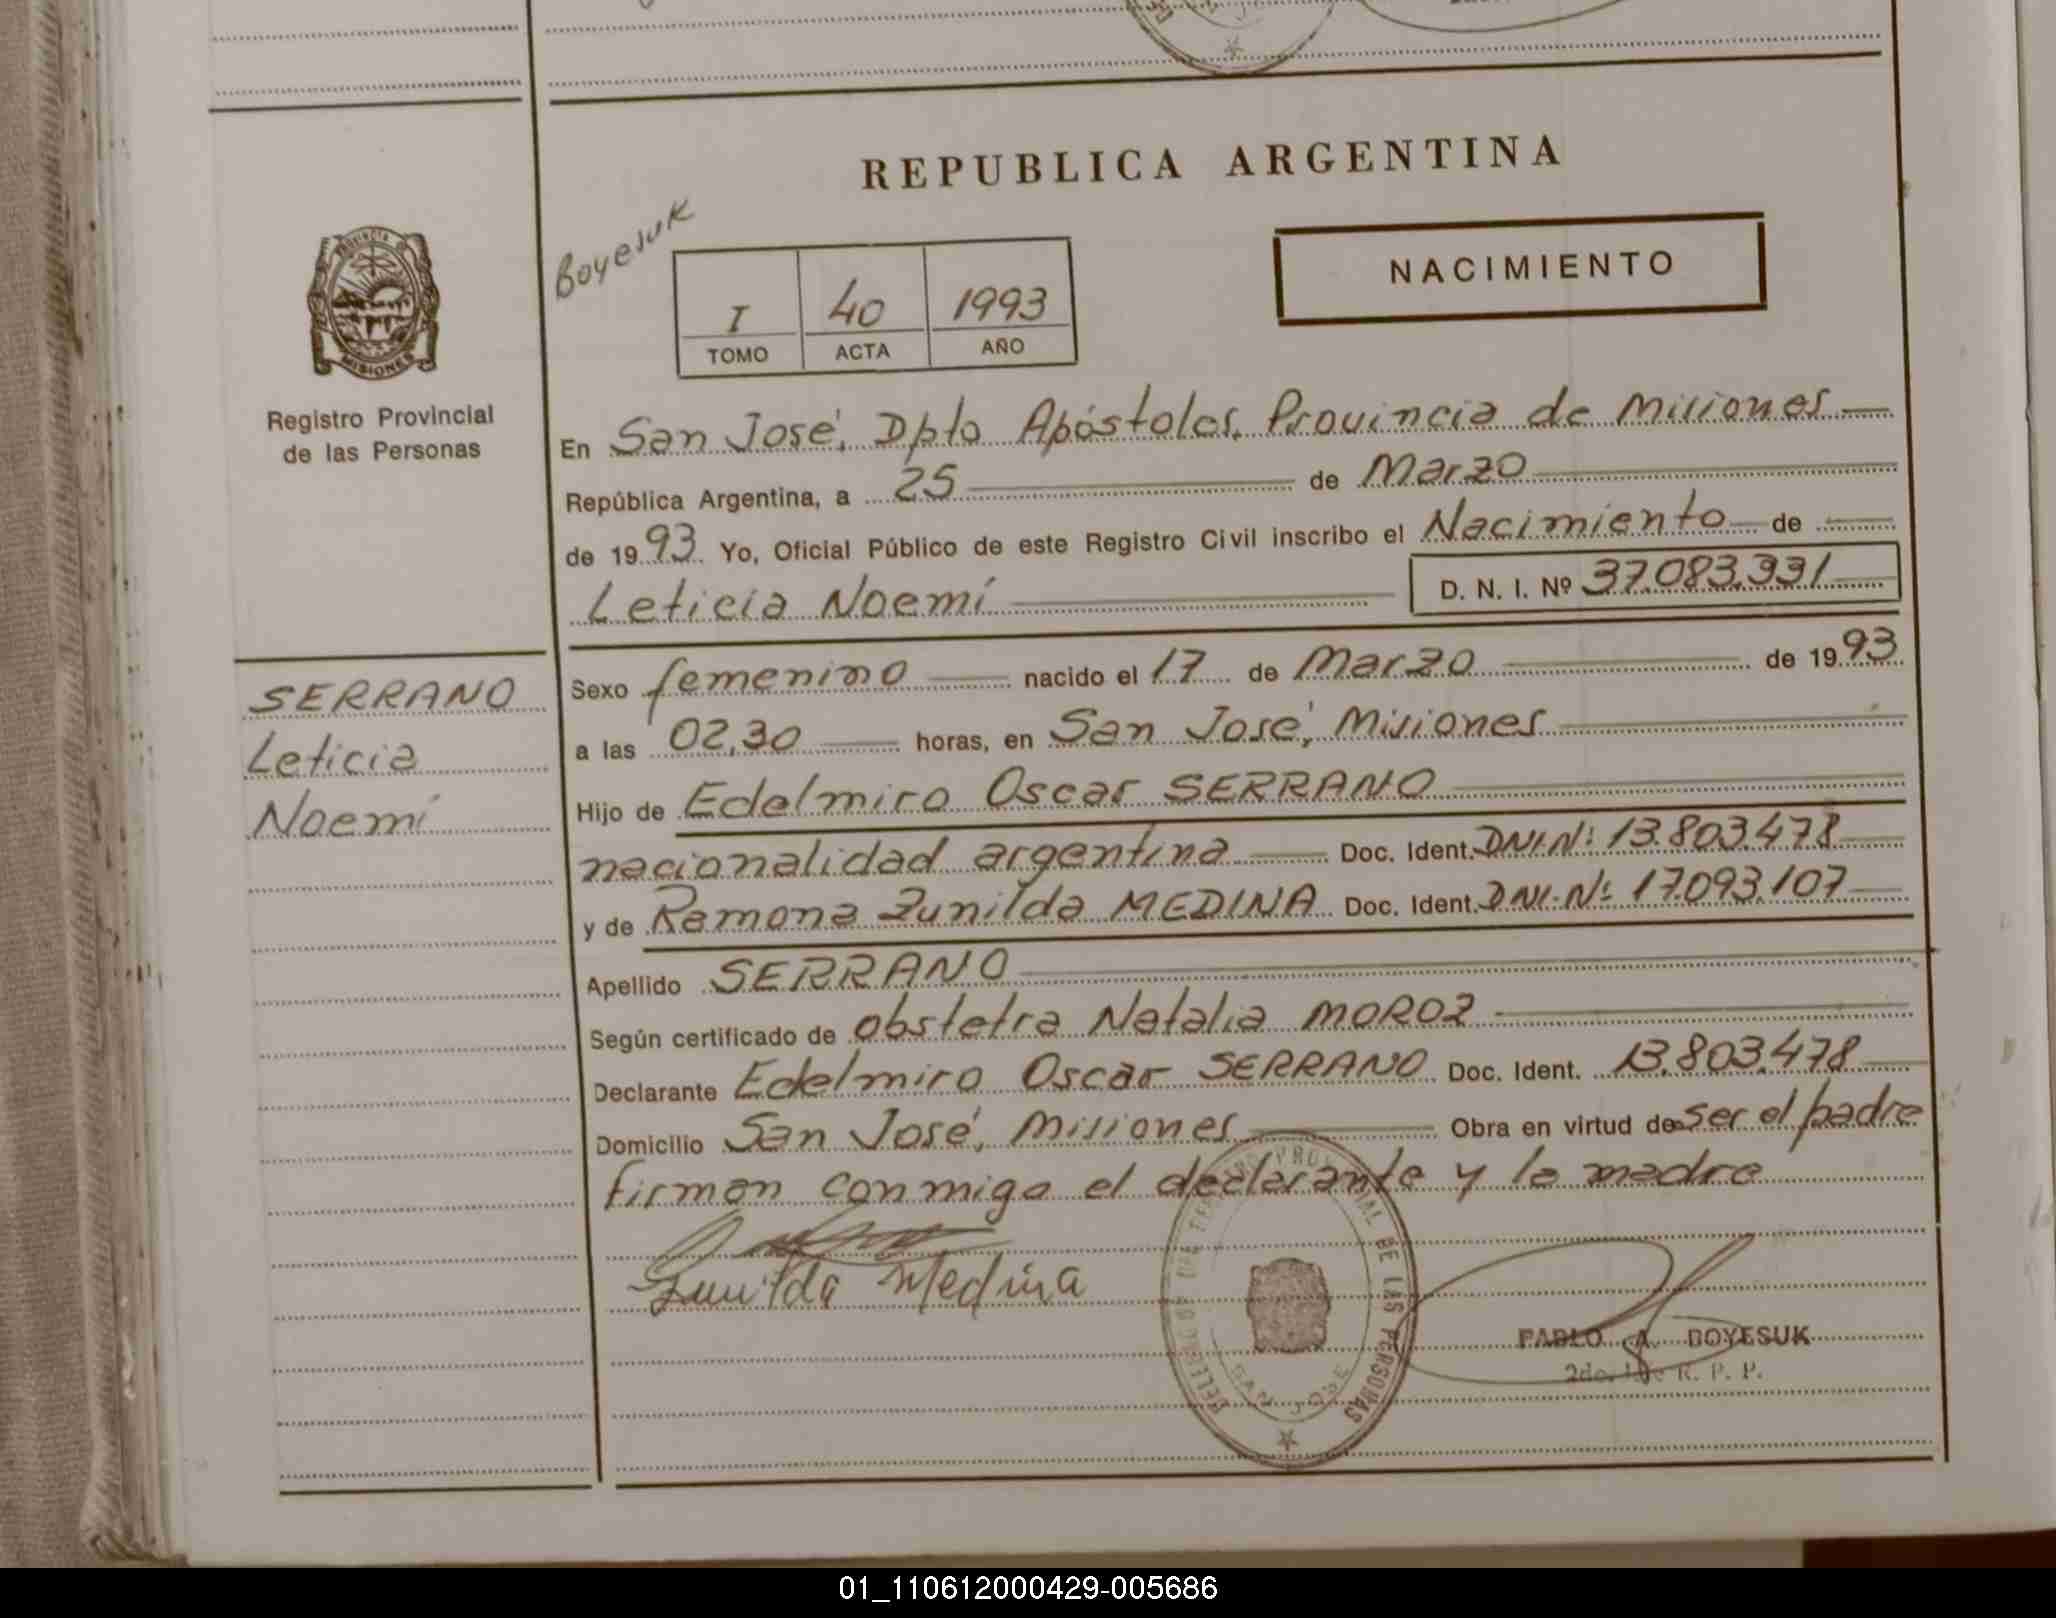 REPUBLICA ARGENTINA
Boyesuk
NACIMIENTO
I 40 1993
TOMO ACTA AÑO
PROVINCIA DE
MISIONES
Registro Provincial
de las Personas
En San José, Dpto Apóstoles, Provincia de Misiones
República Argentina, a 25 de Marzo
de 1993 Yo, Oficial Público de este Registro Civil inscribo el Nacimiento de
Leticia Noemí D. N. I. Nº 37.083.331
SERRANO
Leticia
Noemí
Sexo femenino nacido el 17 de Marzo de 1993
a las 02,30 horas, en San José, Misiones
Hijo de Edelmiro Oscar SERRANO
nacionalidad argentina Doc. Ident. DNI.Nº 13.803.478
y de Ramona Zunilda MEDINA Doc. Ident. DNI.Nº 17.093.107
Apellido SERRANO
Según certificado de obstetra Natalia MOROZ
Declarante Edelmiro Oscar SERRANO Doc. Ident. 13.803.478
Domicilio San José, Misiones Obra en virtud de ser el padre
firman conmigo el declarante y la madre
Zunilda Medina
DE LAS PERSONAS
SAN JOSE
PABLO A. BOYESUK
2do. R. P. P.
01_110612000429-005686